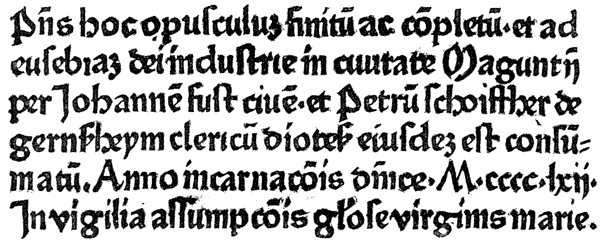 Pn̄s hoc opusculuz finitū ac cōpletū· et ad
eusebiaz dei industrie in ciuitate Maguntij
per Johannē fust ciuē· et Petrū schoiffher de
gernsheym clericū dioteſ eiusdez est consū-
matū. Anno incarnacōis dn̄ice· M·cccc·lxij·
In vigilia assumpcōis gl̄ose virginis marie.